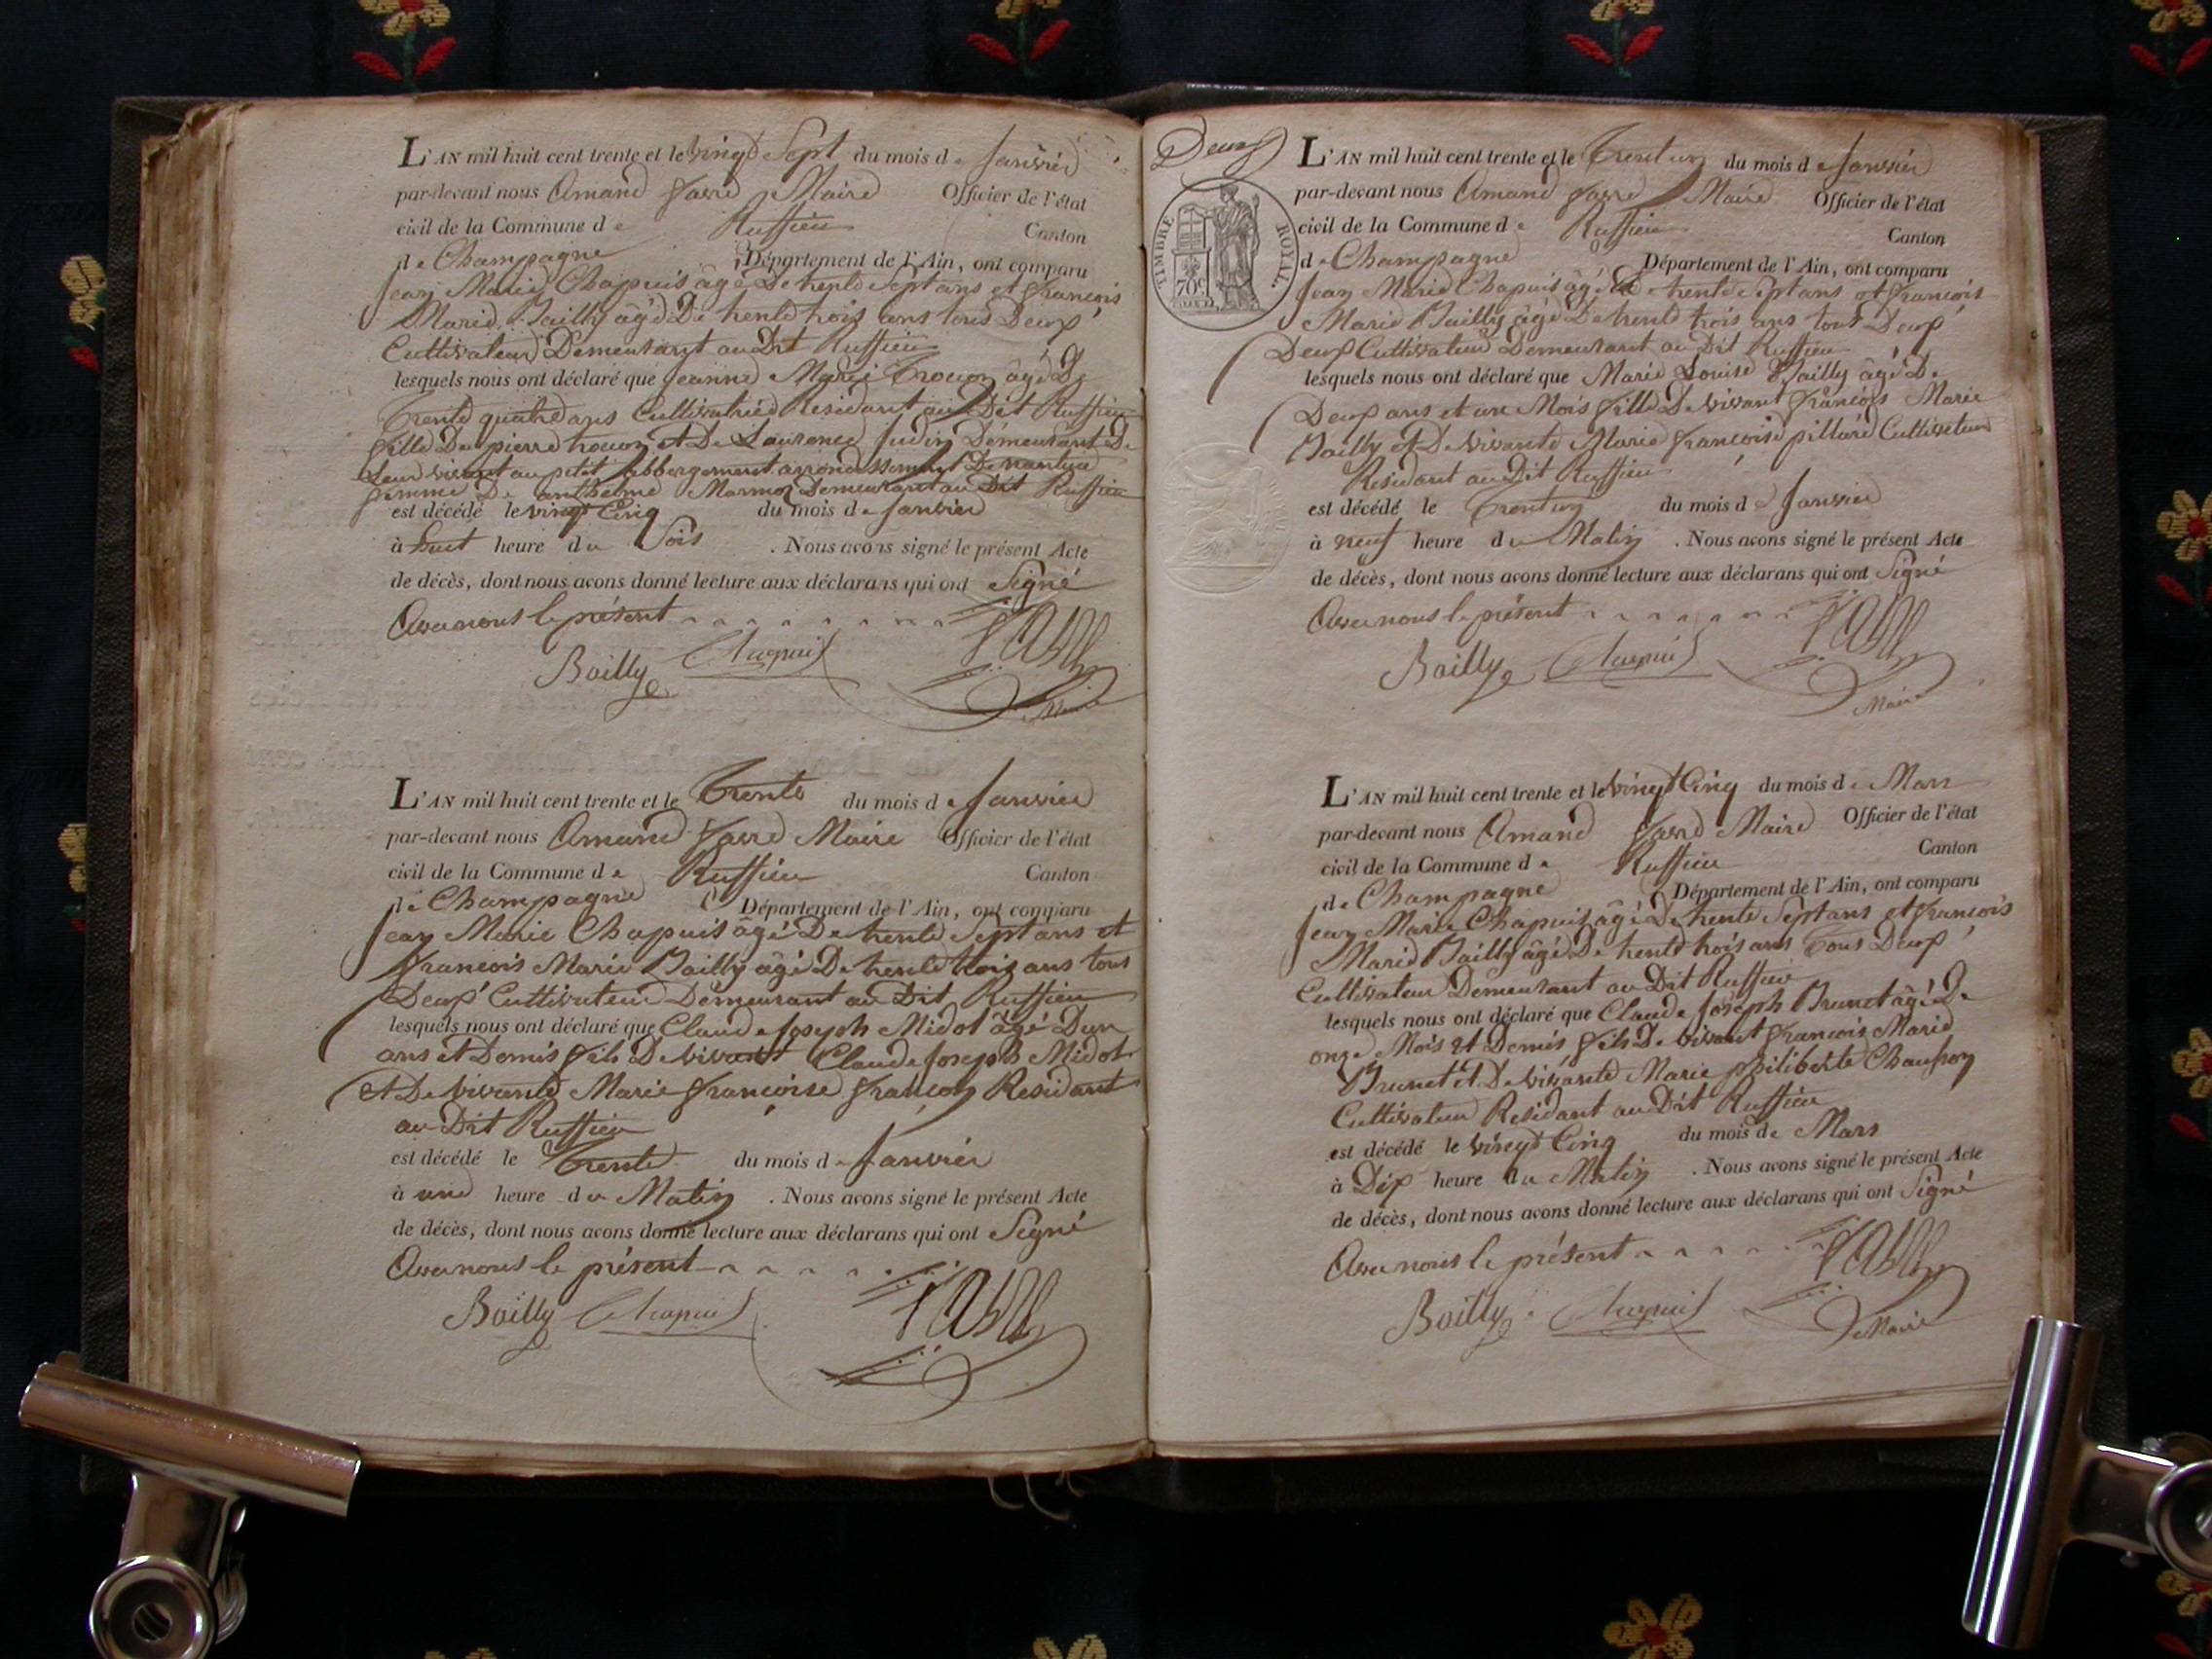 L'AN mil huit cent trente et le vingt Sept du mois de Janvier
par-devant nous Amand favre Maire Officier de l'état
civil de la Commune de Ruffieu Canton
de Champagne Département de l'Ain, ont comparu
Jean Marie Chapuis âgé De trente Sept ans et francois
Marie Bailly âgé De trente trois ans tous Deux
Cultivateur Demeurant au Dit Ruffieu
lesquels nous ont déclaré que Jeanne Marie âgé De
Trente quatre ans Cultivatrice Residant au Dit Ruffieu
fille De pierre et De Laurence Judin Demeurant De
Leur vivant au petit abbergement arrondissement De nantua
femme De anthelme Marmoz Demeurant au Dit Ruffieu
est décédé le vingt Cinq du mois de Janvier
à huit heure du Soir . Nous avons signé le présent Acte
de décès, dont nous avons donné lecture aux déclarans qui ont Signé
Avec nous le présent
Bailly Chapuis favre
Maire
L'AN mil huit cent trente et le Trente du mois de Janvier
par-devant nous Amand favre Maire Officier de l'état
civil de la Commune de Ruffieu Canton
de Champagne Département de l'Ain, ont comparu
Jean Marie Chapuis âgé De trente Sept ans et
francois Marie Bailly âgé De trente trois ans tous
Deux Cultivateur Demeurant au Dit Ruffieu
lesquels nous ont déclaré que Claude Joseph Midot âgé Dun
ans et Demis fils De vivant Claude Joseph Midot
Et De vivante Marie francoise francon Residant
au Dit Ruffieu
est décédé le Trente du mois de Janvier
à une heure du Matin . Nous avons signé le présent Acte
de décès, dont nous avons donné lecture aux déclarans qui ont Signé
Avec nous le présent
Bailly Chapuis favre
Deux
TIMBRE ROYAL.
70c
L'AN mil huit cent trente et le Trentun du mois de Janvier
par-devant nous Amand favre Maire Officier de l'état
civil de la Commune de Ruffieu Canton
de Champagne Département de l'Ain, ont comparu
Jean Marie Chapuis âgé De trente Sept ans et francois
Marie Bailly âgé De trente trois ans tous Deux
Deux Cultivateur Demeurant au Dit Ruffieu
lesquels nous ont déclaré que Marie Louise Bailly âgé De
Deux ans et un Mois fille De vivant francois Marie
Bailly et De vivante Marie francoise pillard Cultivateur
Residant au Dit Ruffieu
est décédé le Trentun du mois de Janvier
à neuf heure du Matin . Nous avons signé le présent Acte
de décès, dont nous avons donné lecture aux déclarans qui ont Signé
Avec nous le présent
Bailly Chapuis favre
Maire
L'AN mil huit cent trente et le vingt Cinq du mois de Mars
par-devant nous Amand favre Maire Officier de l'état
civil de la Commune de Ruffieu Canton
de Champagne Département de l'Ain, ont comparu
Jean Marie Chapuis âgé De trente Sept ans et francois
Marie Bailly âgé De trente trois ans Tous Deux
Cultivateur Demeurant au Dit Ruffieu
lesquels nous ont déclaré que Claude Joseph Brunet âgé De
onze Mois et Demis fils De vivant francois Marie
Brunet et De vivante Marie philiberte
Cultivateur Residant au Dit Ruffieu
est décédé le vingt Cinq du mois de Mars
à Dix heure du Matin . Nous avons signé le présent Acte
de décès, dont nous avons donné lecture aux déclarans qui ont Signé
Avec nous le présent
Bailly Chapuis favre
Maire